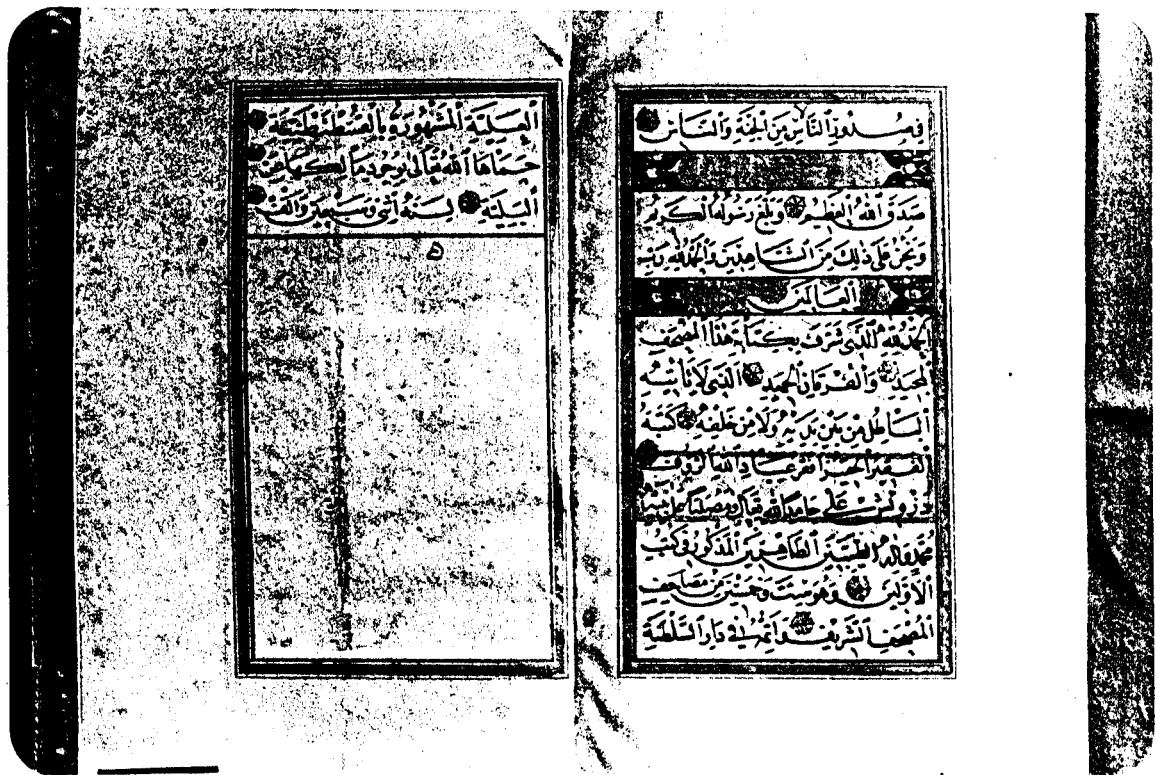 فِي صُدُورِ ٱلنَّاسِ مِنَ ٱلْجِنَّةِ وَٱلنَّاسِ
صَدَقَ ٱللّٰهُ ٱلْعَظِيمُ وَبَلَّغَ رَسُولُهُ ٱلْكَرِيمُ
وَنَحْنُ عَلَى ذٰلِكَ مِنَ ٱلشَّاهِدِينَ وَٱلْحَمْدُ لِلّٰهِ رَبِّ
ٱلْعَالَمِينَ
ٱلْحَمْدُ لِلّٰهِ ٱلَّذِي شَرَّفَ بِكِتَابَةِ هٰذَا ٱلْمُصْحَفِ
ٱلْمَجِيدِ وَٱلْفُرْقَانِ ٱلْحَمِيدِ ٱلَّذِي لَا يَأْتِيهِ
ٱلْبَاطِلُ مِنْ بَيْنِ يَدَيْهِ وَلَا مِنْ خَلْفِهِ كَتَبَهُ
ٱلْفَقِيرُ ٱلْحَقِيرُ أَفْقَرُ عِبَادِ ٱللّٰهِ ٱلرَّؤُفِ
دَرْوِيشْ عَلِي حَامِدًا لِلّٰهِ تَعَالَى وَمُصَلِّيًا عَلَى نَبِيِّهِ
مُحَمَّدٍ وَآلِهِ ٱلطَّيِّبِينَ ٱلطَّاهِرِينَ ٱلْمَذْكُورِ فِي كُتُبِ
ٱلْأَوَّلِينَ وَهُوَ سِتَّ وَخَمْسِينَ مِنْ مَصَاحِفِ
ٱلْمُصْحَفِ ٱلشَّرِيفِ وَأَتَمَّهُ فِي دَارِ ٱلسَّلْطَنَةِ
ٱلْعَلِيَّةِ ٱلْمَشْهُورَةِ بِٱلْقُسْطَنْطِينِيَّةِ
حَمَاهَا ٱللّٰهُ تَعَالَى بِوُجُودِ مَالِكِهَا عَنِ
ٱلْبَلِيَّةِ لِسَنَةِ ٱثْنَي وَسَبْعِينَ وَأَلْفٍ